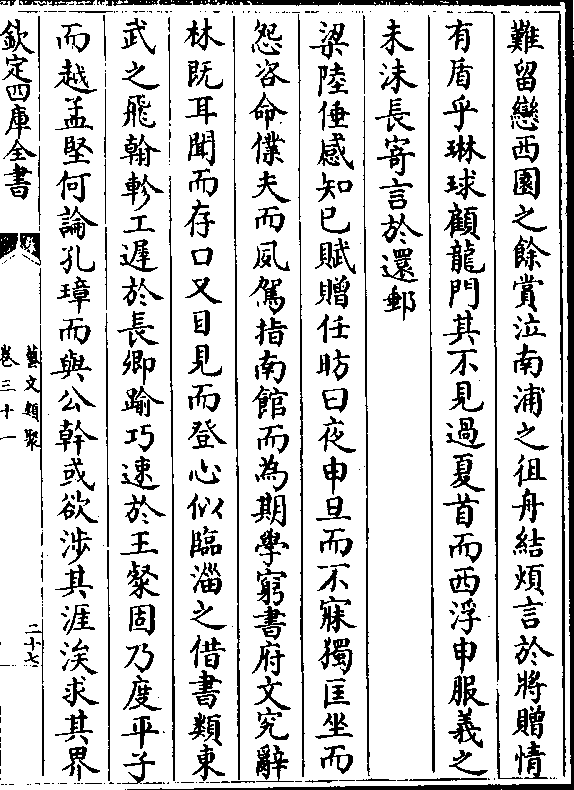 難留戀西園之餘賞泣南浦之徂舟結煩言於將贈情
有盾乎琳球顧龍門其不見過夏首而西浮申服義之
未沬長寄言於還郵
梁陸倕感知己賦贈任昉曰夜申旦而不寐獨匡坐而
怨咨命僕夫而夙駕指南館而為期學窮書府文究辭
林既耳聞而存口又目見而登心似臨淄之借書類東
武之飛翰軫工遲於長卿踰巧速於王粲固乃度平子
而越孟堅何論孔璋而與公幹或欲涉其涯涘求其界
欽定四庫全書
藝文類聚
卷三十一
二十七